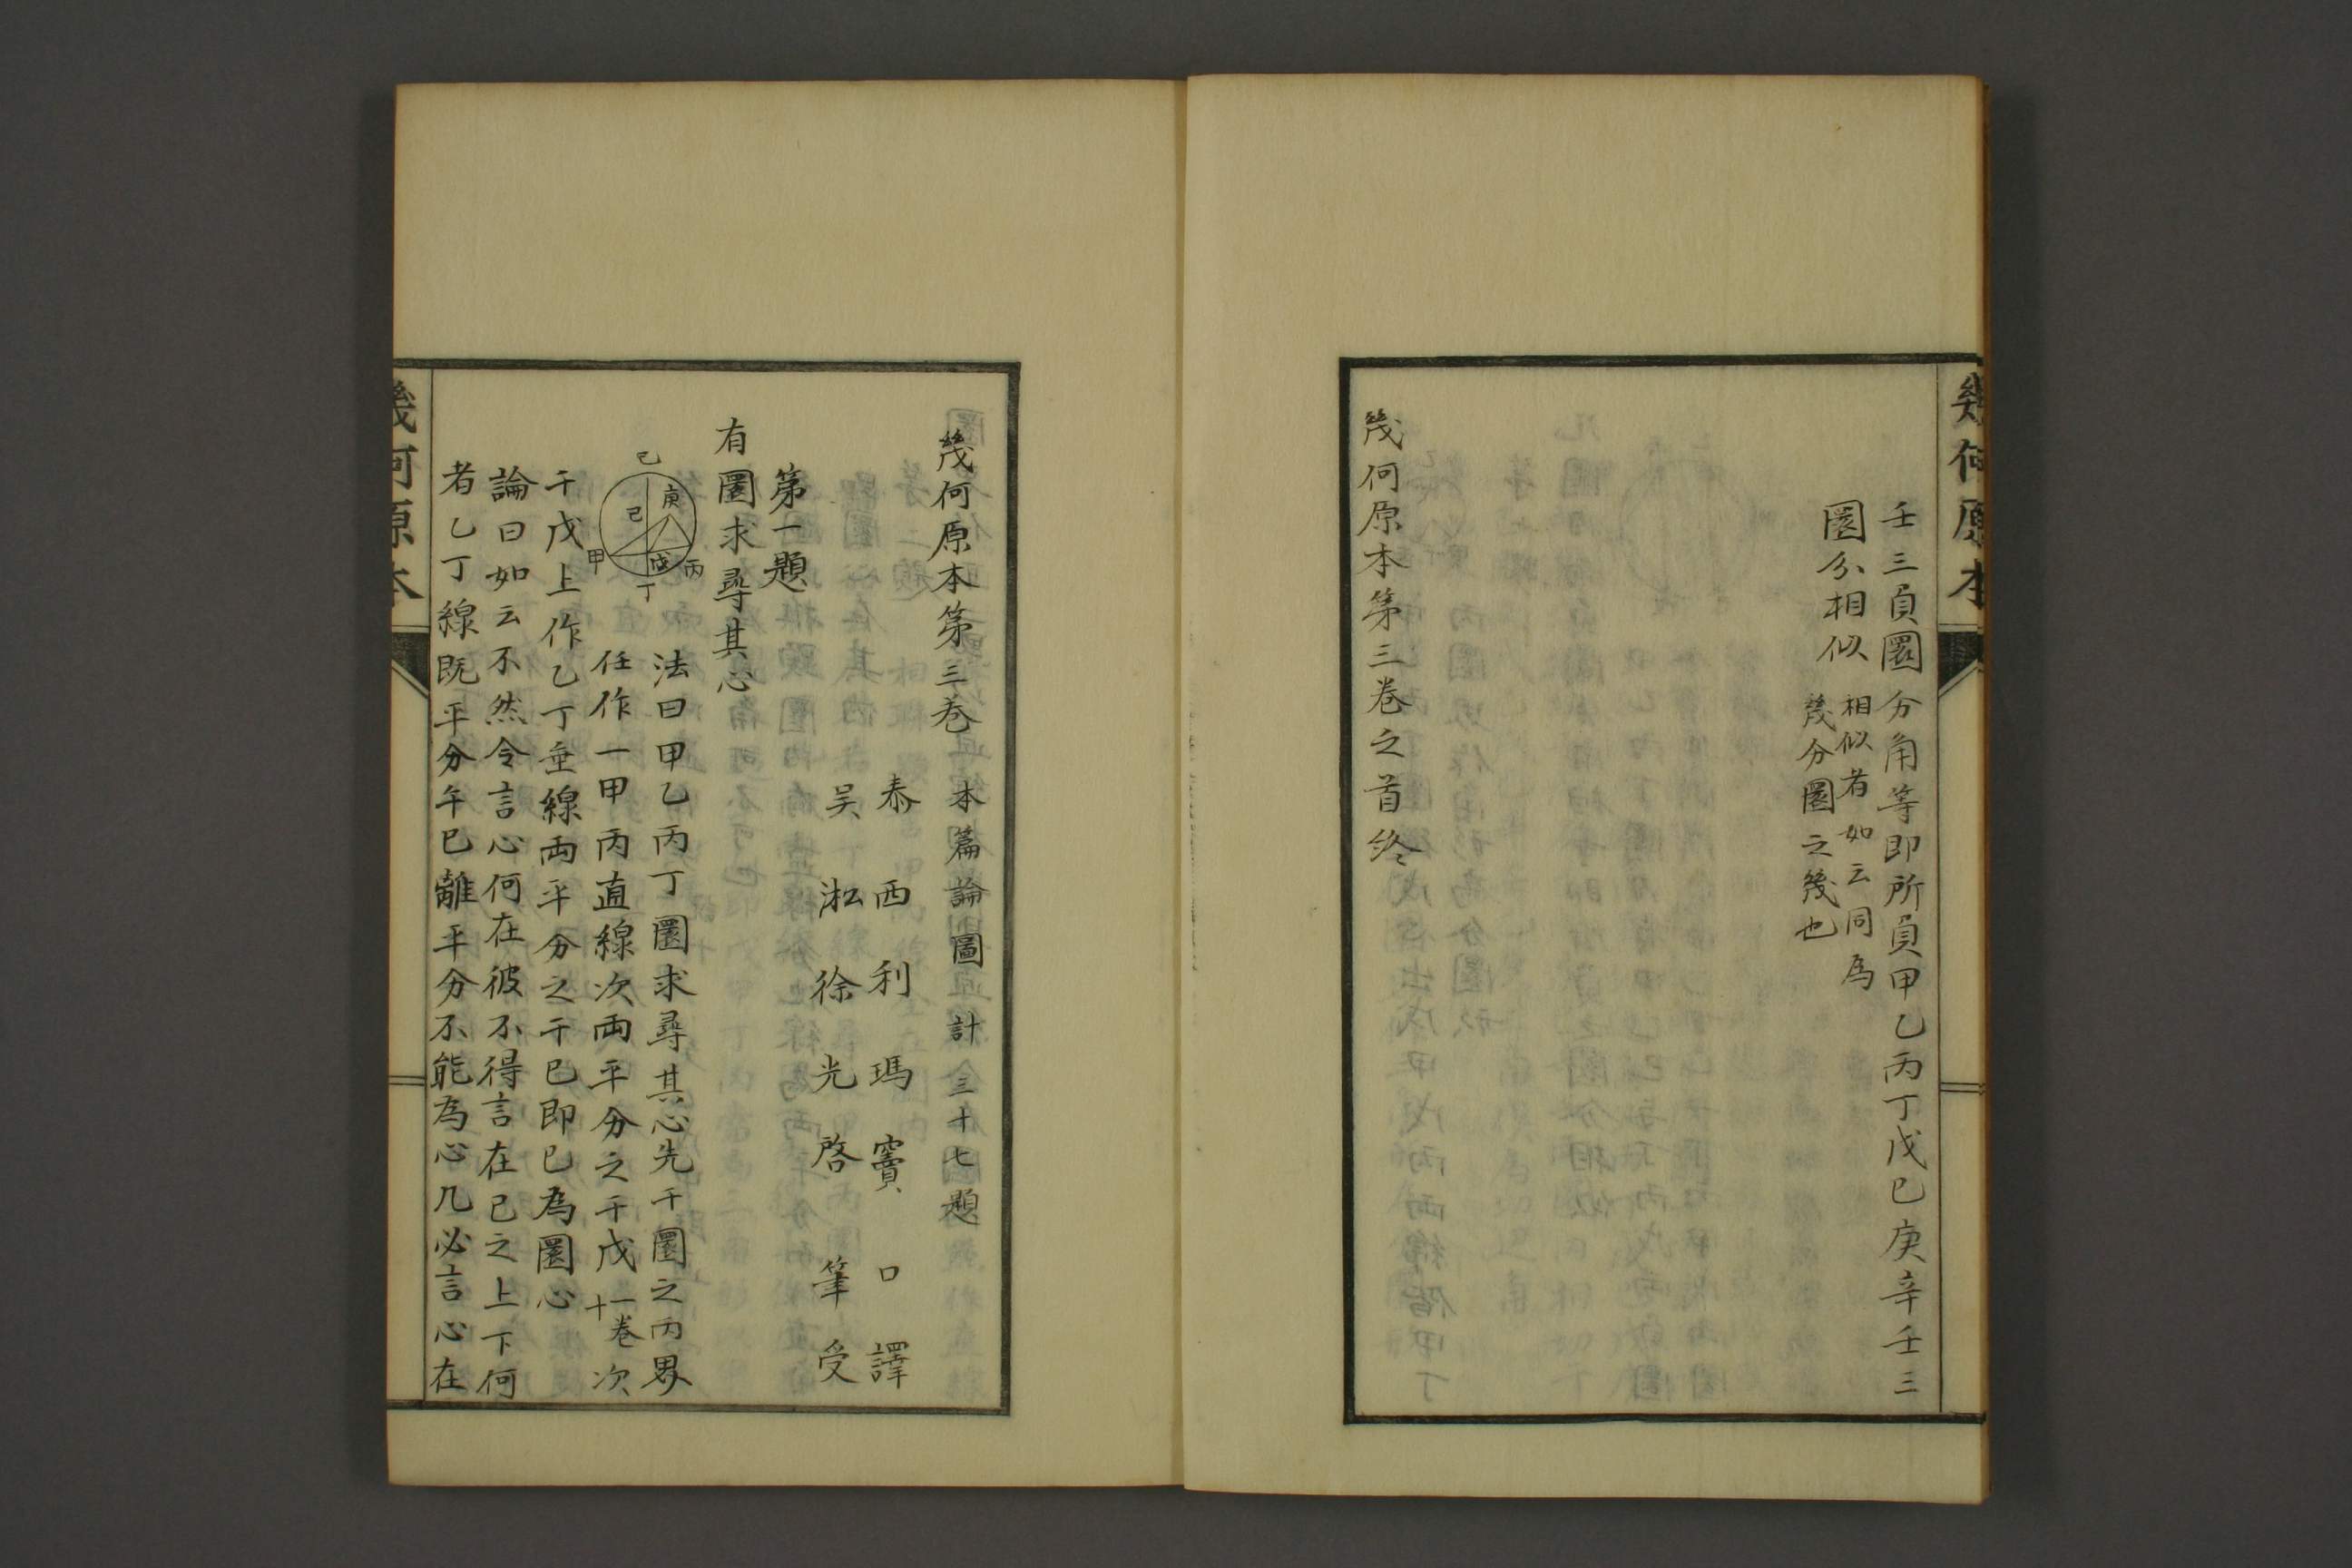 幾何原本
壬三負圜分角等即所負甲乙丙丁戊巳庚辛壬三
圜分相似
相似者如云同為
幾分圜之幾也
幾何原本第三卷之首終
幾何原本第三卷
本篇論圜計三十七題
泰西利瑪竇口譯
吴淞徐光啓筆受
第一題
有圜求尋其心
己
庚
己
甲
戊
丙
丁
法曰甲乙丙丁圜求尋其心先于圜之丙界
任作一甲丙直線次両平分之于戊
一卷
十
次
于戊上作乙丁垂線両平分之于巳即巳為圜心
論曰如云不然令言心何在彼不得言在己之上下何
者乙丁線既平分午巳離平分不能為心凢必言心在
幾何原本